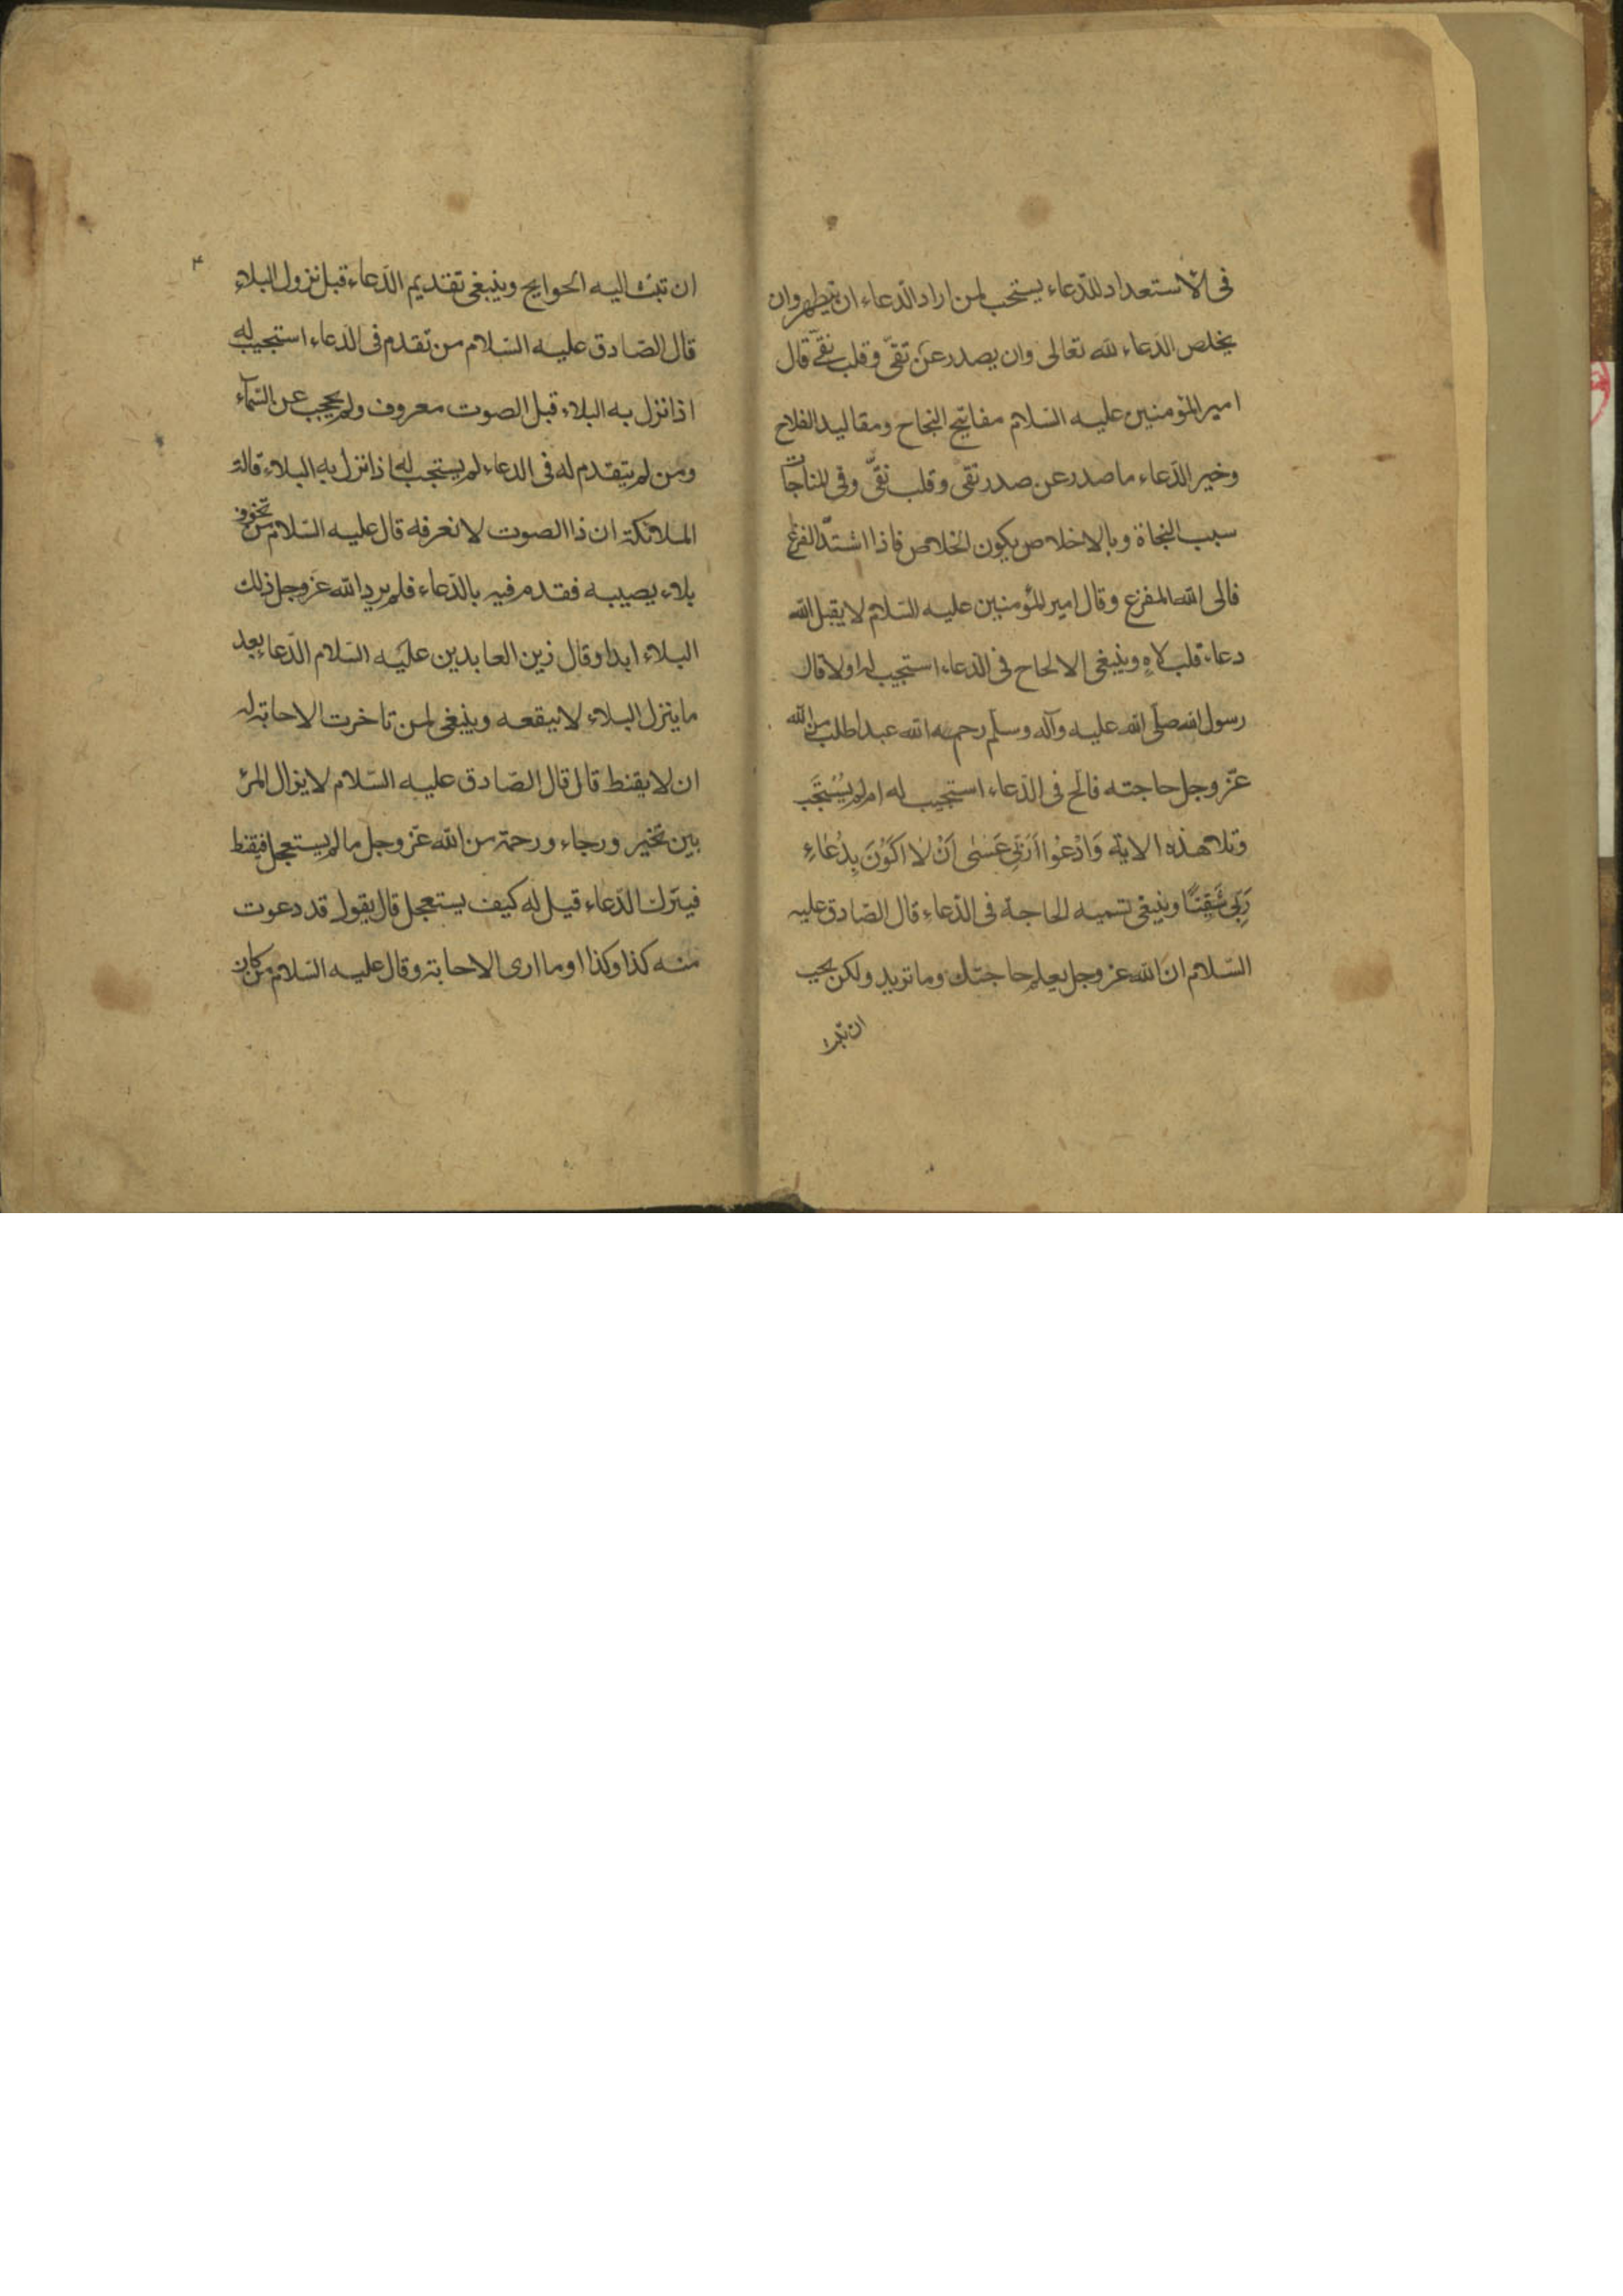 فى الاستعداد للدّعاء يستحب لمن اراد الدّعاء ان يتطهر وان
يخلص الدّعاء لله تعالى وان يصدر عن تقىّ وقلب نقىّ قال
امير المؤمنين عليه السّلام مفاتيح النجاح ومقاليد الفلاح
وخير الدّعاء ما صدر عن صدر نقى وقلب تقىّ وفى المناجات
سبب النجاة وبالاخلاص يكون الخلاص فاذا اشتدّ الفزع
فالى الله المفزع وقال امير المؤمنين عليه السّلام لا يقبل الله
دعاء قلب لاهٍ وينبغى الالحاح فى الدّعاء استجيب له اولا قال
رسول الله صلّى الله عليه وآله وسلّم رحمه الله عبدا طلب من الله
عزّ وجل حاجته فالح فى الدّعاء استجيب له ام لم يُسْتَجَب
وتلا هذه الاية وَادْعُوا رَبّى عَسٰى اَنْ لا اَكُوْنَ بِدُعٰاءِ
رَبّى شَقِيًّا وينبغى تسميه الحاجة فى الدّعاءِ قال الصّادق عليه
السّلام انّ الله عز وجل يعلم حاجتك وما تريد ولكن يحب
ان تبث
۴
ان تبث اليه الحوايج وينبغى تقديم الدّعاء قبل نزول البلاء
قال الصّادق عليه السّلام من تقدم فى الدّعاء استجيب له
اذا نزل به البلاء قبل الصوت معروف ولم يحجب عن السّمآء
ومن لم يتقدم له فى الدعاء لم يستجب له اذا نزل به البلاء قالت
الملائكة ان ذا الصوت لا نعرفه قال عليه السّلام من تخوف
بلاء يصيبه فقدم فيه بالدّعاء فلم يرد الله عز وجل ذلك
البلاء ابدا وقال زين العابدين عليه السّلام الدّعا بعد
ما ينزل البلاء لا ينفعه وينبغى لمن تاخرت الاجابة له
ان لا يقنط قال قال الصّادق عليه السّلام لا يزال المرء
بين تخير ورجاء ورحمة من الله عزّ وجل ما لم يستعجل فيقنط
فيترك الدّعاء قيل له كيف يستعجل قال يقول قد دعوت
منه كذا وكذا وما ارى الاحابة وقال عليه السّلام من كان